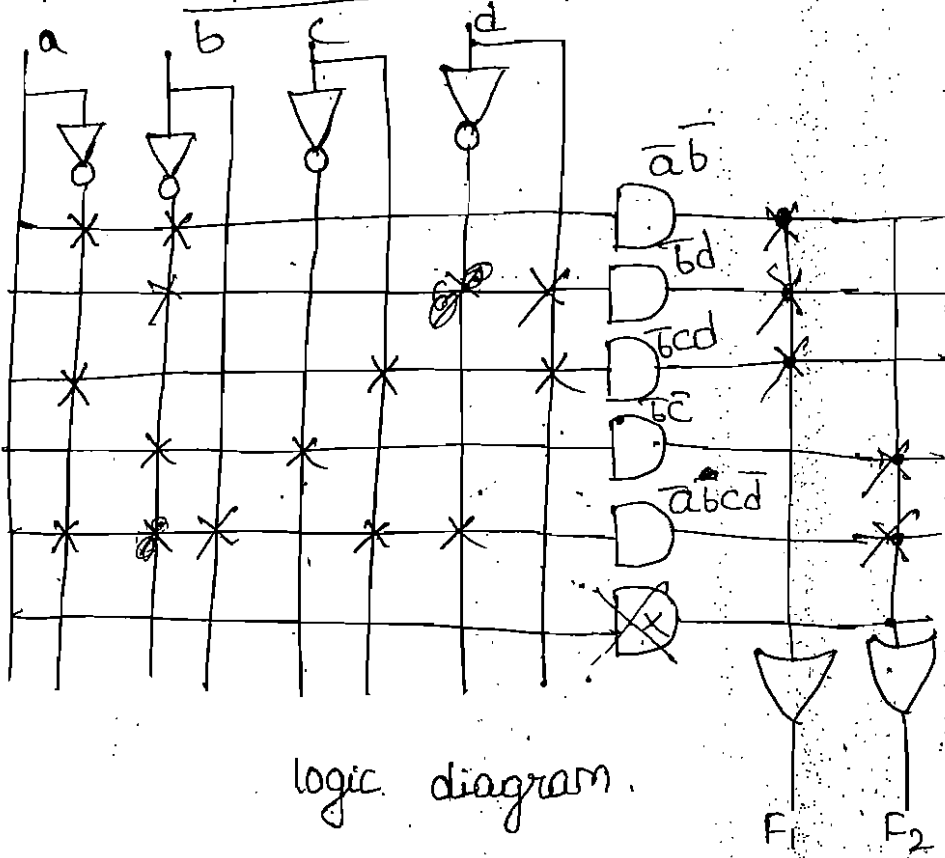 a b c d
a̅ b̅
b̅d
b̅cd
b̅ c̅
a̅bcd̅
x
logic diagram.
F₁ F₂